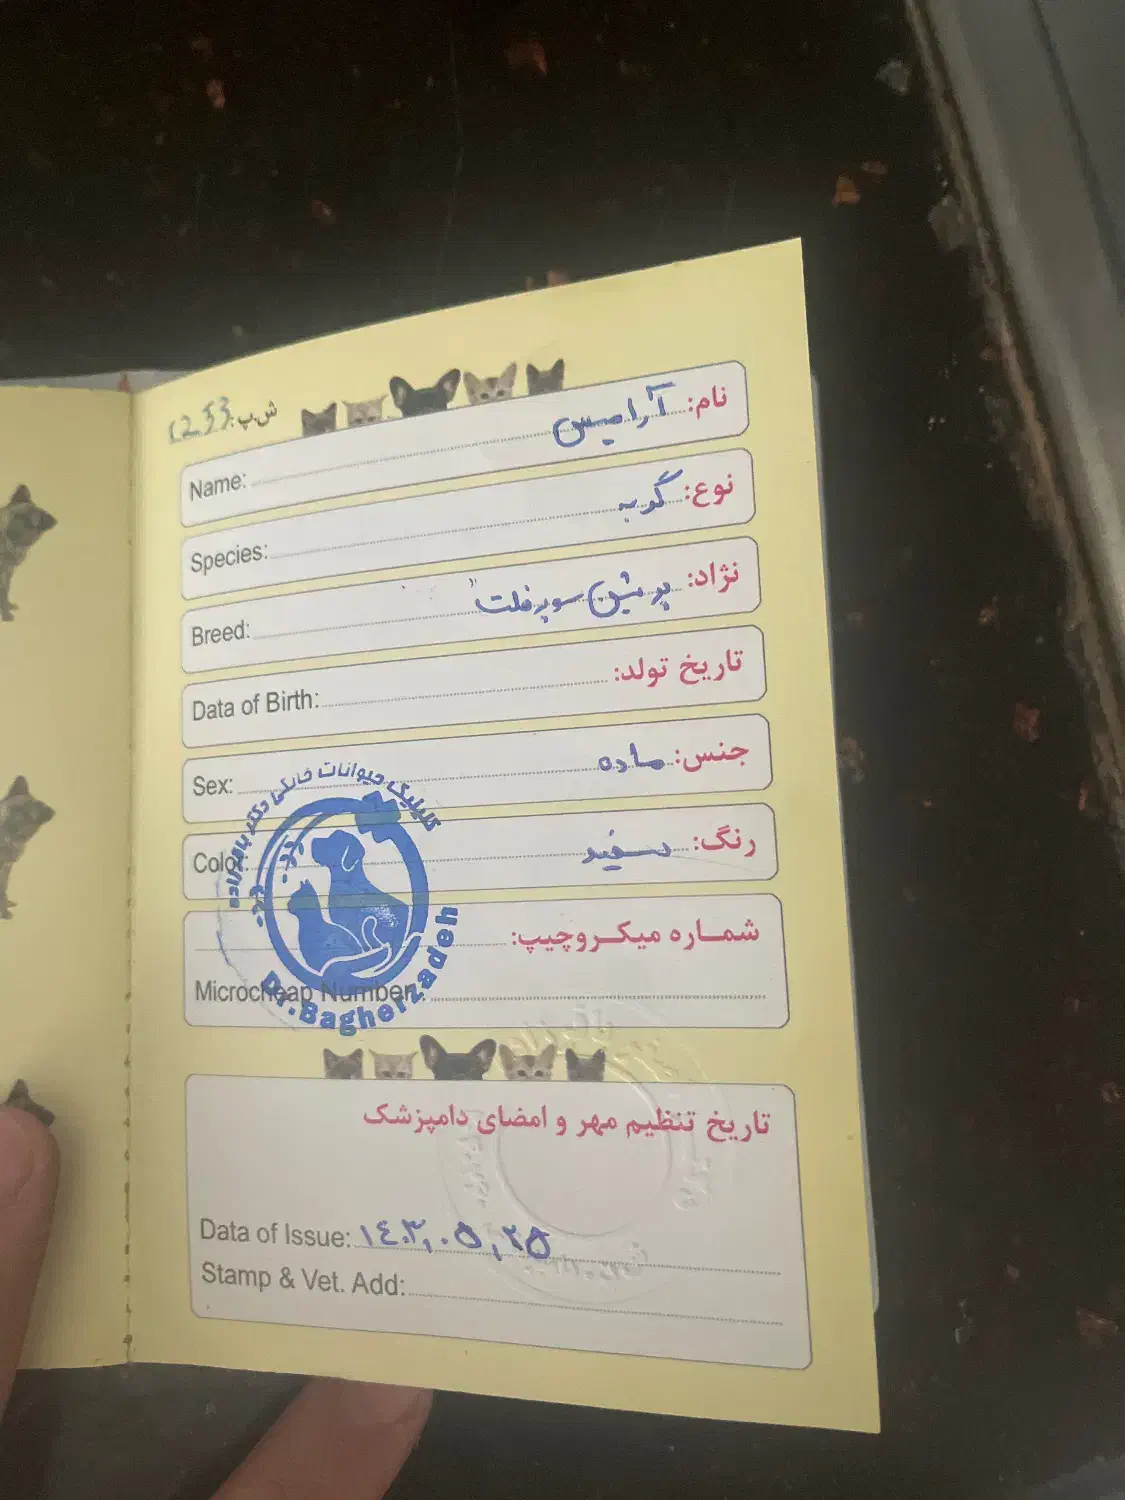 ش.پ: 1253
نام: آرامیس
Name:
نوع: گربه
Species:
نژاد: پرشین سوپرفلت
Breed:
تاریخ تولد:
Data of Birth:
جنس: ماده
Sex:
رنگ: سفید
Color:
شماره میکروچیپ:
Microcheap Number:
کلینیک حیوانات خانگی دکتر باقرزاده
Dr.Bagherzadeh
تاریخ تنظیم مهر و امضای دامپزشک
Data of Issue: ۱۴۰۳,۰۵,۲۵
Stamp & Vet. Add: